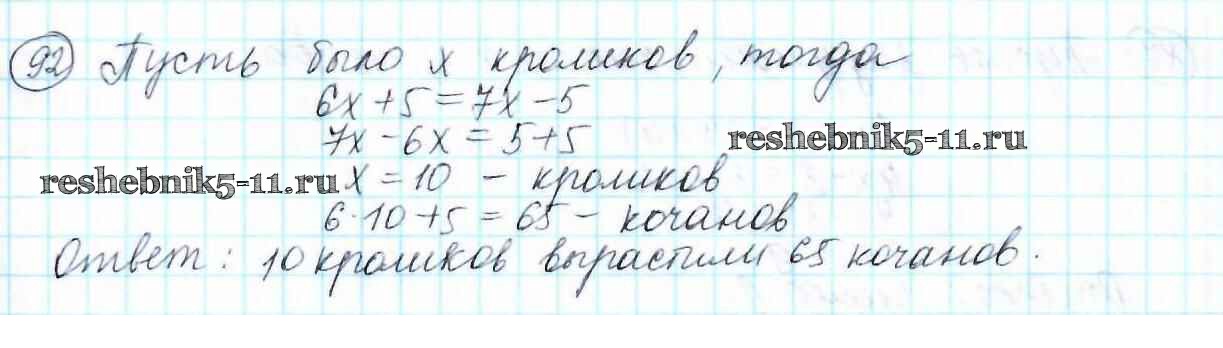 92 Пусть было x кроликов, тогда
6x + 5 = 7x - 5
7x - 6x = 5 + 5
reshebnik5-11.ru
reshebnik5-11.ru x = 10 - кроликов
6·10 + 5 = 65 - кочанов
Ответ: 10 кроликов вырастили 65 кочанов.